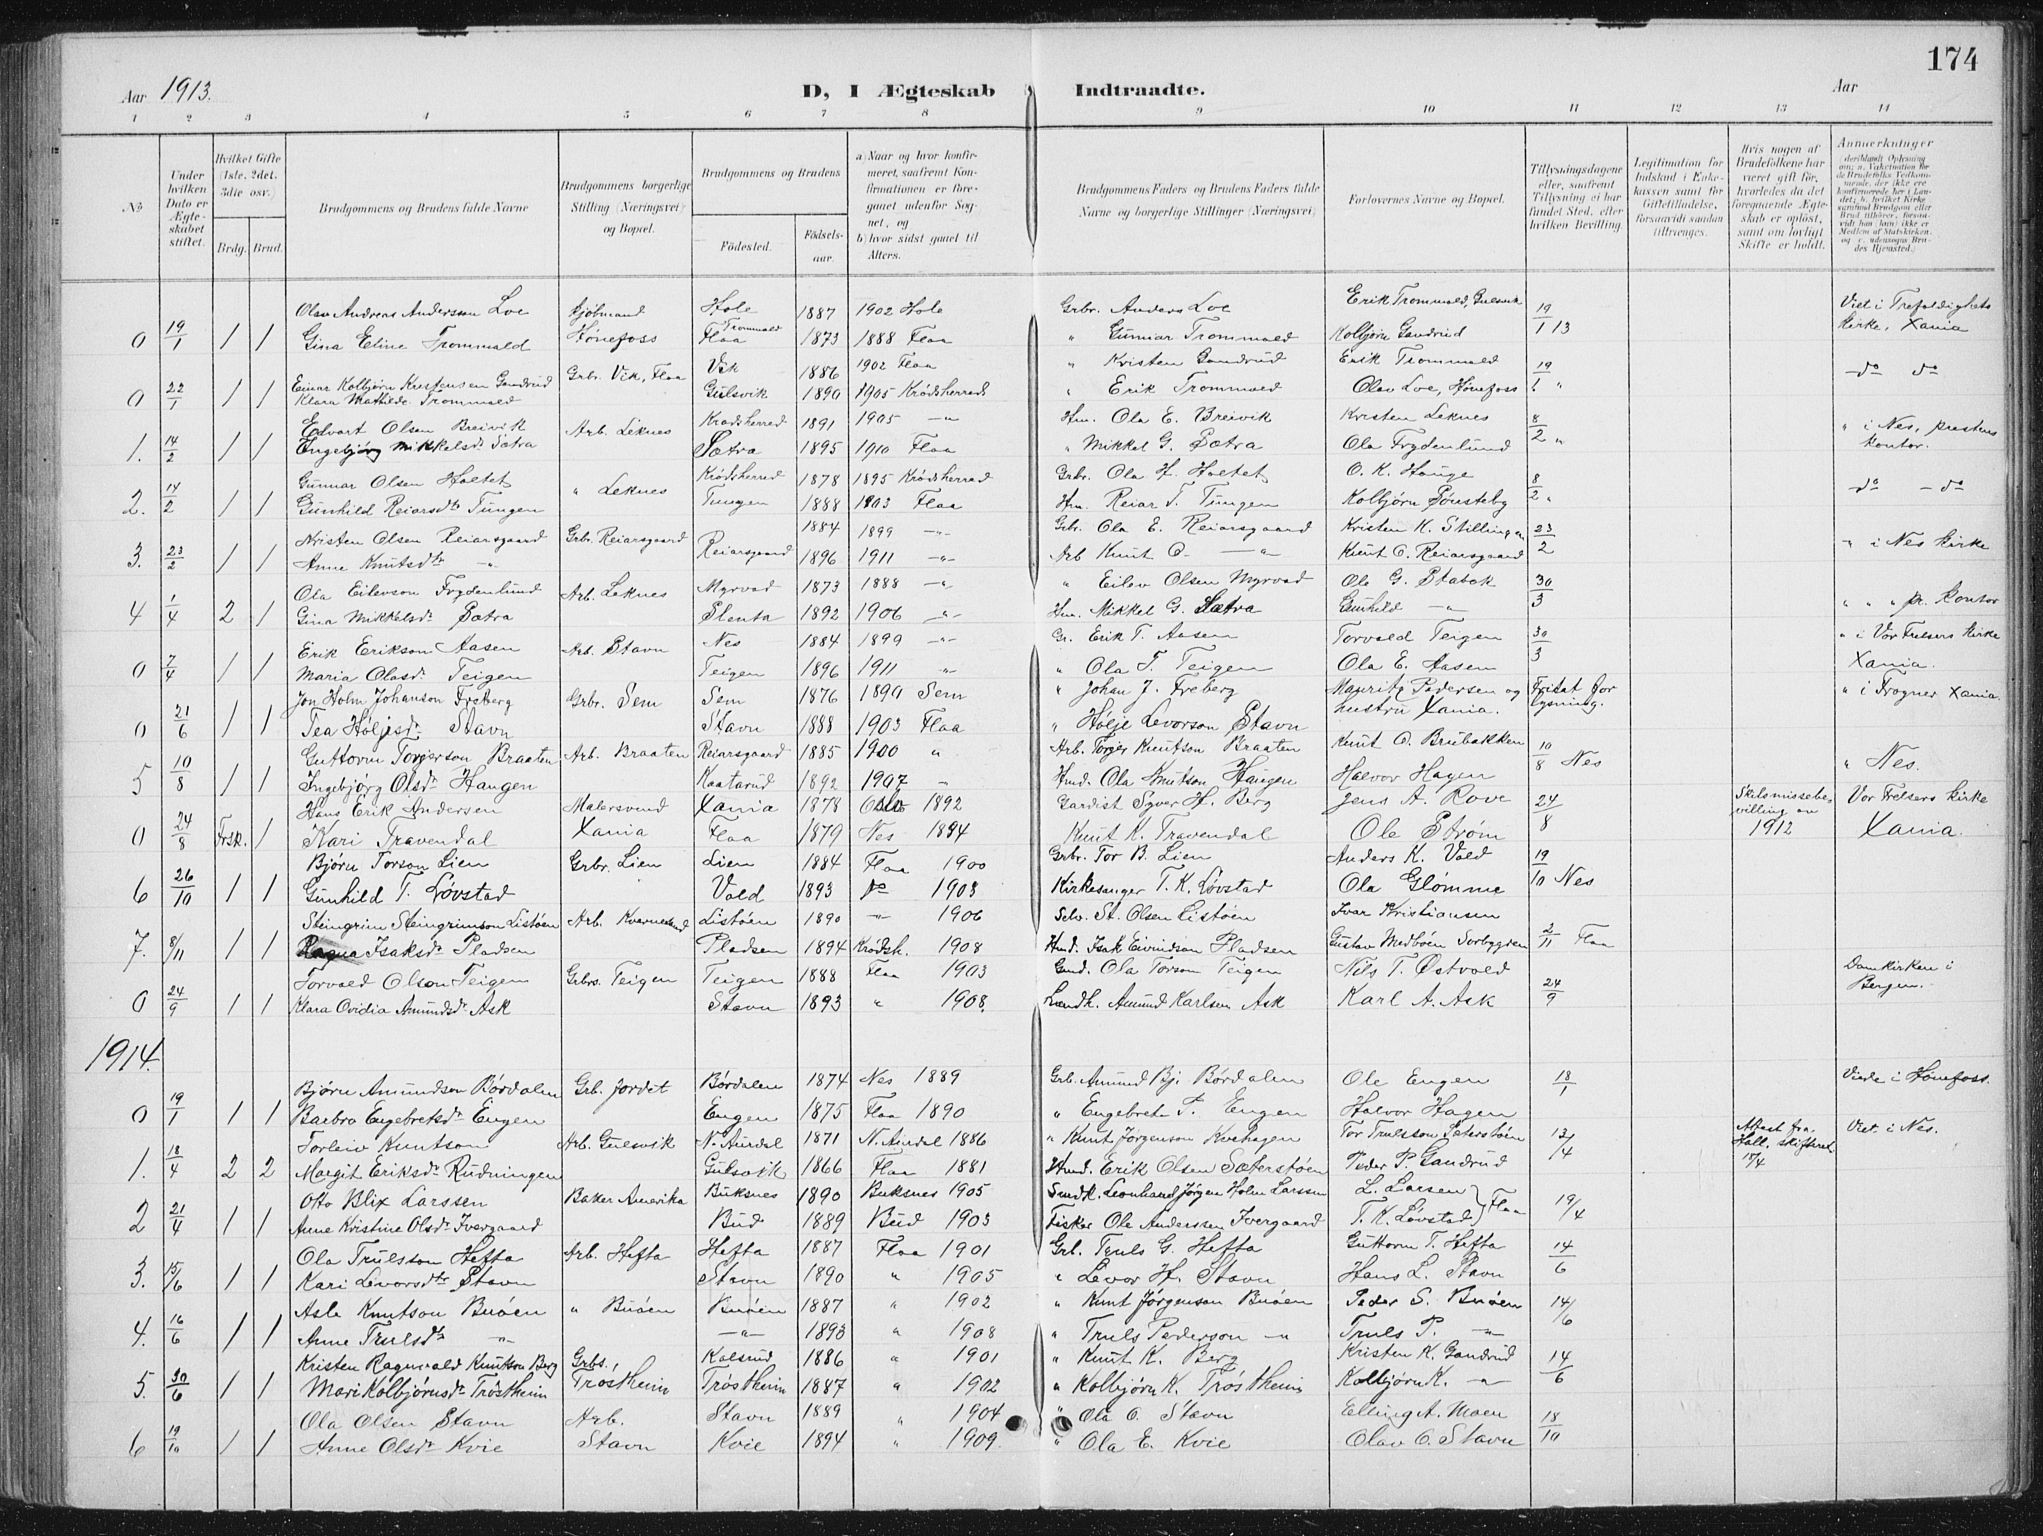 174
Aar 1913.
D, I Ægteskab Indtraadte.
Aar
1 2 3 4 5 6 7 8 9 10 11 12 13 14
No
Under hvilken Dato er Ægteskabet stiftet.
Hvilket Gifte (1ste, 2det, 3die osv.)
Brdg. Brud.
Brudgommens og Brudens fulde Navne
Brudgommens borgerlige Stilling (Næringsvei) og Bopæl.
Brudgommens og Brudens
Födested. Födsels-aar.
a) Naar og hvor konfirmeret, saafremt Konfirmationen er foregaaet udenfor Sognet, og
b) hvor sidst gaaet til Alters.
Brudgommens Faders og Brudens Faders fulde Navne og borgerlige Stillinger (Næringsvei)
Forlovernes Navne og Bopæl.
Tillysningsdagene eller, saafremt Tillysning ei har fundet Sted, efter hvilken Bevilling.
Legitimation for Indskud i Enkekassen samt for Giftetilladelse, forsaavidt saadan tiltrænges.
Hvis nogen af Brudefolkene har været gift før, hvorledes da det foregaaende Ægteskab er oplöst, samt om lovligt Skifte er holdt.
Anmerkninger
Olav Andreas Anderssen Loe Kjøbmand Hole 1887 1902 Hole Grbr. Anders Loe Erik Trommald, Gulsvik 19 Viet i Trefoldigheds
0 19/1 1 1 Gina Eline Trommald Hønefoss Trommald Flaa 1873 1888 Flaa " Gunnar Trommald Kolbjørn Gandrud 1 13 kirke, Xania
Einar Kolbjørn Kristensen Gandrud Grbr. Vik, Flaa Vik 1886 1902 Flaa " Kristen Gandrud Erik Trommald 19
0 22/1 1 1 Klara Mathilde Trommald Gulsvik 1890 1905 Krødsherred " Erik Trommald Olav Loe, Hønefoss 1 " do do
Edvart Olsen Breivik Arb. Leknes Krødsherred 1891 1905 -"- Hm. Ola E. Breivik Kristen Leknes 8 " i Nes, prestens
1. 14/2 1 1 Ingebjørg Mikkelsdtr Sætra Sætra 1895 1910 Flaa " Mikkel G. Sætra Ola Frydenlund 2 " kontor.
Gunnar OlsenHoltet " Leknes Krødsherred 1878 1895 Krødsherred Grbr. Ola H. Holtet O. K. Hauge 8
2. 14/2 1 1 Gunhild Reiarsdtr Tungen Tungen 1888 1903 Flaa Hm. Reiar T. Tungen Kolbjørn Sønsteby 2 " do - do
Kristen Olsen Reiarsgaard Grbr. Reiarsgaard 1884 1899 -"- Grbr. Ola E. Reiarsgaard Kristen K. Stillingen 23
3. 23/2 1 1 Anne Knutsdtr " Reiarsgaard 1896 1911 -"- Arb Knut O. -"- Knut O. Reiarsgaard 2 " i Nes kirke
Ola Eilevson Frydenlund Arb. Leknes Myrvad 1873 1888 -"- " Eilev Olsen Myrvad Ole G. Stabok 30
4 1/4 2 1 Gina Mikkelsdr Sætra Slenta 1892 1906 -"- Hm. Mikkel G. Sætra Gunhild -"- 3 " " " pr. kontor
Erik Erikson Aasen Arb. Stavn Nes 1884 1899 -"- Gr. Erik T. Aasen Torvald Teigen 30 " i Vor Frelsers kirke
0 7/4 1 1 Maria Olasdr Teigen Teigen 1896 1911 " " Ola T. Teigen Ola E. Aasen 3 Xania.
Jon Holm Johanson Freberg Grbr. Sem Sem 1876 1890 Sem " Johan J. Freberg Mauritz Pedersen og Fritat for " i Frogner Xania.
0 21/6 1 1 Tea Høljesdr Stavn Stavn 1888 1903 Flaa " Hølje Levorson Stavn hustru Xania. lysning.
Guttorm Torgerson Braaten Arb. Braaten Reiarsgaard 1885 1900 " Arb. Torger Knutson Braaten Knut O. Brubakken 10
5 10/8 1 1 Ingebjørg Olsdr Haugen Kaatarud 1892 1907 " Hmd. Ola Knutson Haugen Halvor Hagen 8 Nes " Nes.
Hans Erik Andersen Malersvend Xania 1878 Oslo 1892 Gardist Syver H. Berg Jens A. Rove 24 Skilsmissebevilling av Vor Frelsers kirke
0 24/8 Frsk. 1 Kari Travendal Xania Flaa 1879 Nes 1894 Knut K. Travendal Ole Strøm 8 1912 Xania.
Bjørn Torson Lien Grbr. Lien Lien 1884 Flaa 1900 Grbr. Tor B. Lien Anders K. Vold 19
6 26/10 1 1 Gunhild T. Løvstad Vold 1893 do 1903 Kirkesanger T. K. Løvstad Ola Glømme 10 Nes
Steingrim Steingrimson Listøen Arb. Listøen 1890 -"- 1906 Selv. St. Olsen Listøen Ivar Kristiansen
7. 8/11 1 1 Ragna Isaksdr Pladsen Pladsen 1894 Krødsh. 1908 Hmd. Isak Eivindson Pladsen Gustav Medbøen Sorbygden 2/11 Flaa
Torvald Olson Teigen Grbr. Teigen Teigen 1888 Flaa 1903 Gmd. Ola Torson Teigen Nils T. Østvold 24 Domkirken i
0 24/9 1 1 Klara Ovidia Amundsdr Ask Stavn 1893 " 1908. Landh. Amund Karlsen Ask Karl A. Ask 9 Bergen.
1914.
Bjørn Amundson Børdalen Grb. Jordet Børdalen 1874 Nes 1889 Grb. Amund Bj. Børdalen Ole Engen 18 Viede i Hønefoss.
0 19/1 1 1 Barbro Engebretsdr Engen Engen 1875 Flaa 1890 " Engebret P. Engen Halvor Hagen 1
Torleiv Knutson Arb. Gulsvik N. Aurdal 1871 N. Aurdal 1886 " Knut Jørgenson Kvehagen Tor Trulsson Sæterstøen 13 Attest fra Viet i Nes.
1. 18/4 2 2 Margit Eriksdr Rudningen Gulsvik 1866 Flaa 1881 Hmd. Erik Olsen Sæterstøen Peder P. Gandrud /4 Hall. skifteret 17/4
Otto Blix Larssen Baker Amerika Buksnes 1890 Buksnes 1905 Smdk. Leonhard Jørgen Holm Larssen L. Larsen } Flaa 19
2 21/4 1 1 Anne Kristine Olsdr Ivergaard Bud 1889 Bud 1903 Fisker Ole Anderssen Ivergaard T. K. Løvstad /4
Ola Trulsson Hefta Arb. Hefta Hefta 1887 Flaa 1901 Grb. Truls G. Hefta Guttorm T. Hefta 14
3. 15/6 1 1 Kari Levorsdtr Stavn Stavn 1890 " 1905 " Levor H. Stavn Hans L. Stavn 6
Asle Knutson Buøen " Buøen Buøen 1887 " 1902 " Knut Jørgenson Buøen Peder S. Buøen 14
4. 16/6 1 1 Anne Trulsdtr -"- -"- 1893 " 1908 " Truls Pederson -"- Truls P. -"- /6
Kristen Ragnvald Knutson Berg Grbs. Kolsrud 1886 " 1901 " Knut K. Berg Kristen K. Gandrud 14
5. 30/6 1 1 Mari Kolbjørnsdr Trøstheim Trøstheim Trøstheim 1887 " 1902 " Kolbjørn K. Trøstheim Kolbjørn K. -"- 6
Ola Olsen Stavn Arb. Stavn 1889 " 1904 " Ola O. Stavn Elling A. Moen 18
6 19/10 1 1 Anne Olsdr Kvie Stavn Kvie 1894 " 1909. " Ola E. Kvie Olav O. Stavn 10